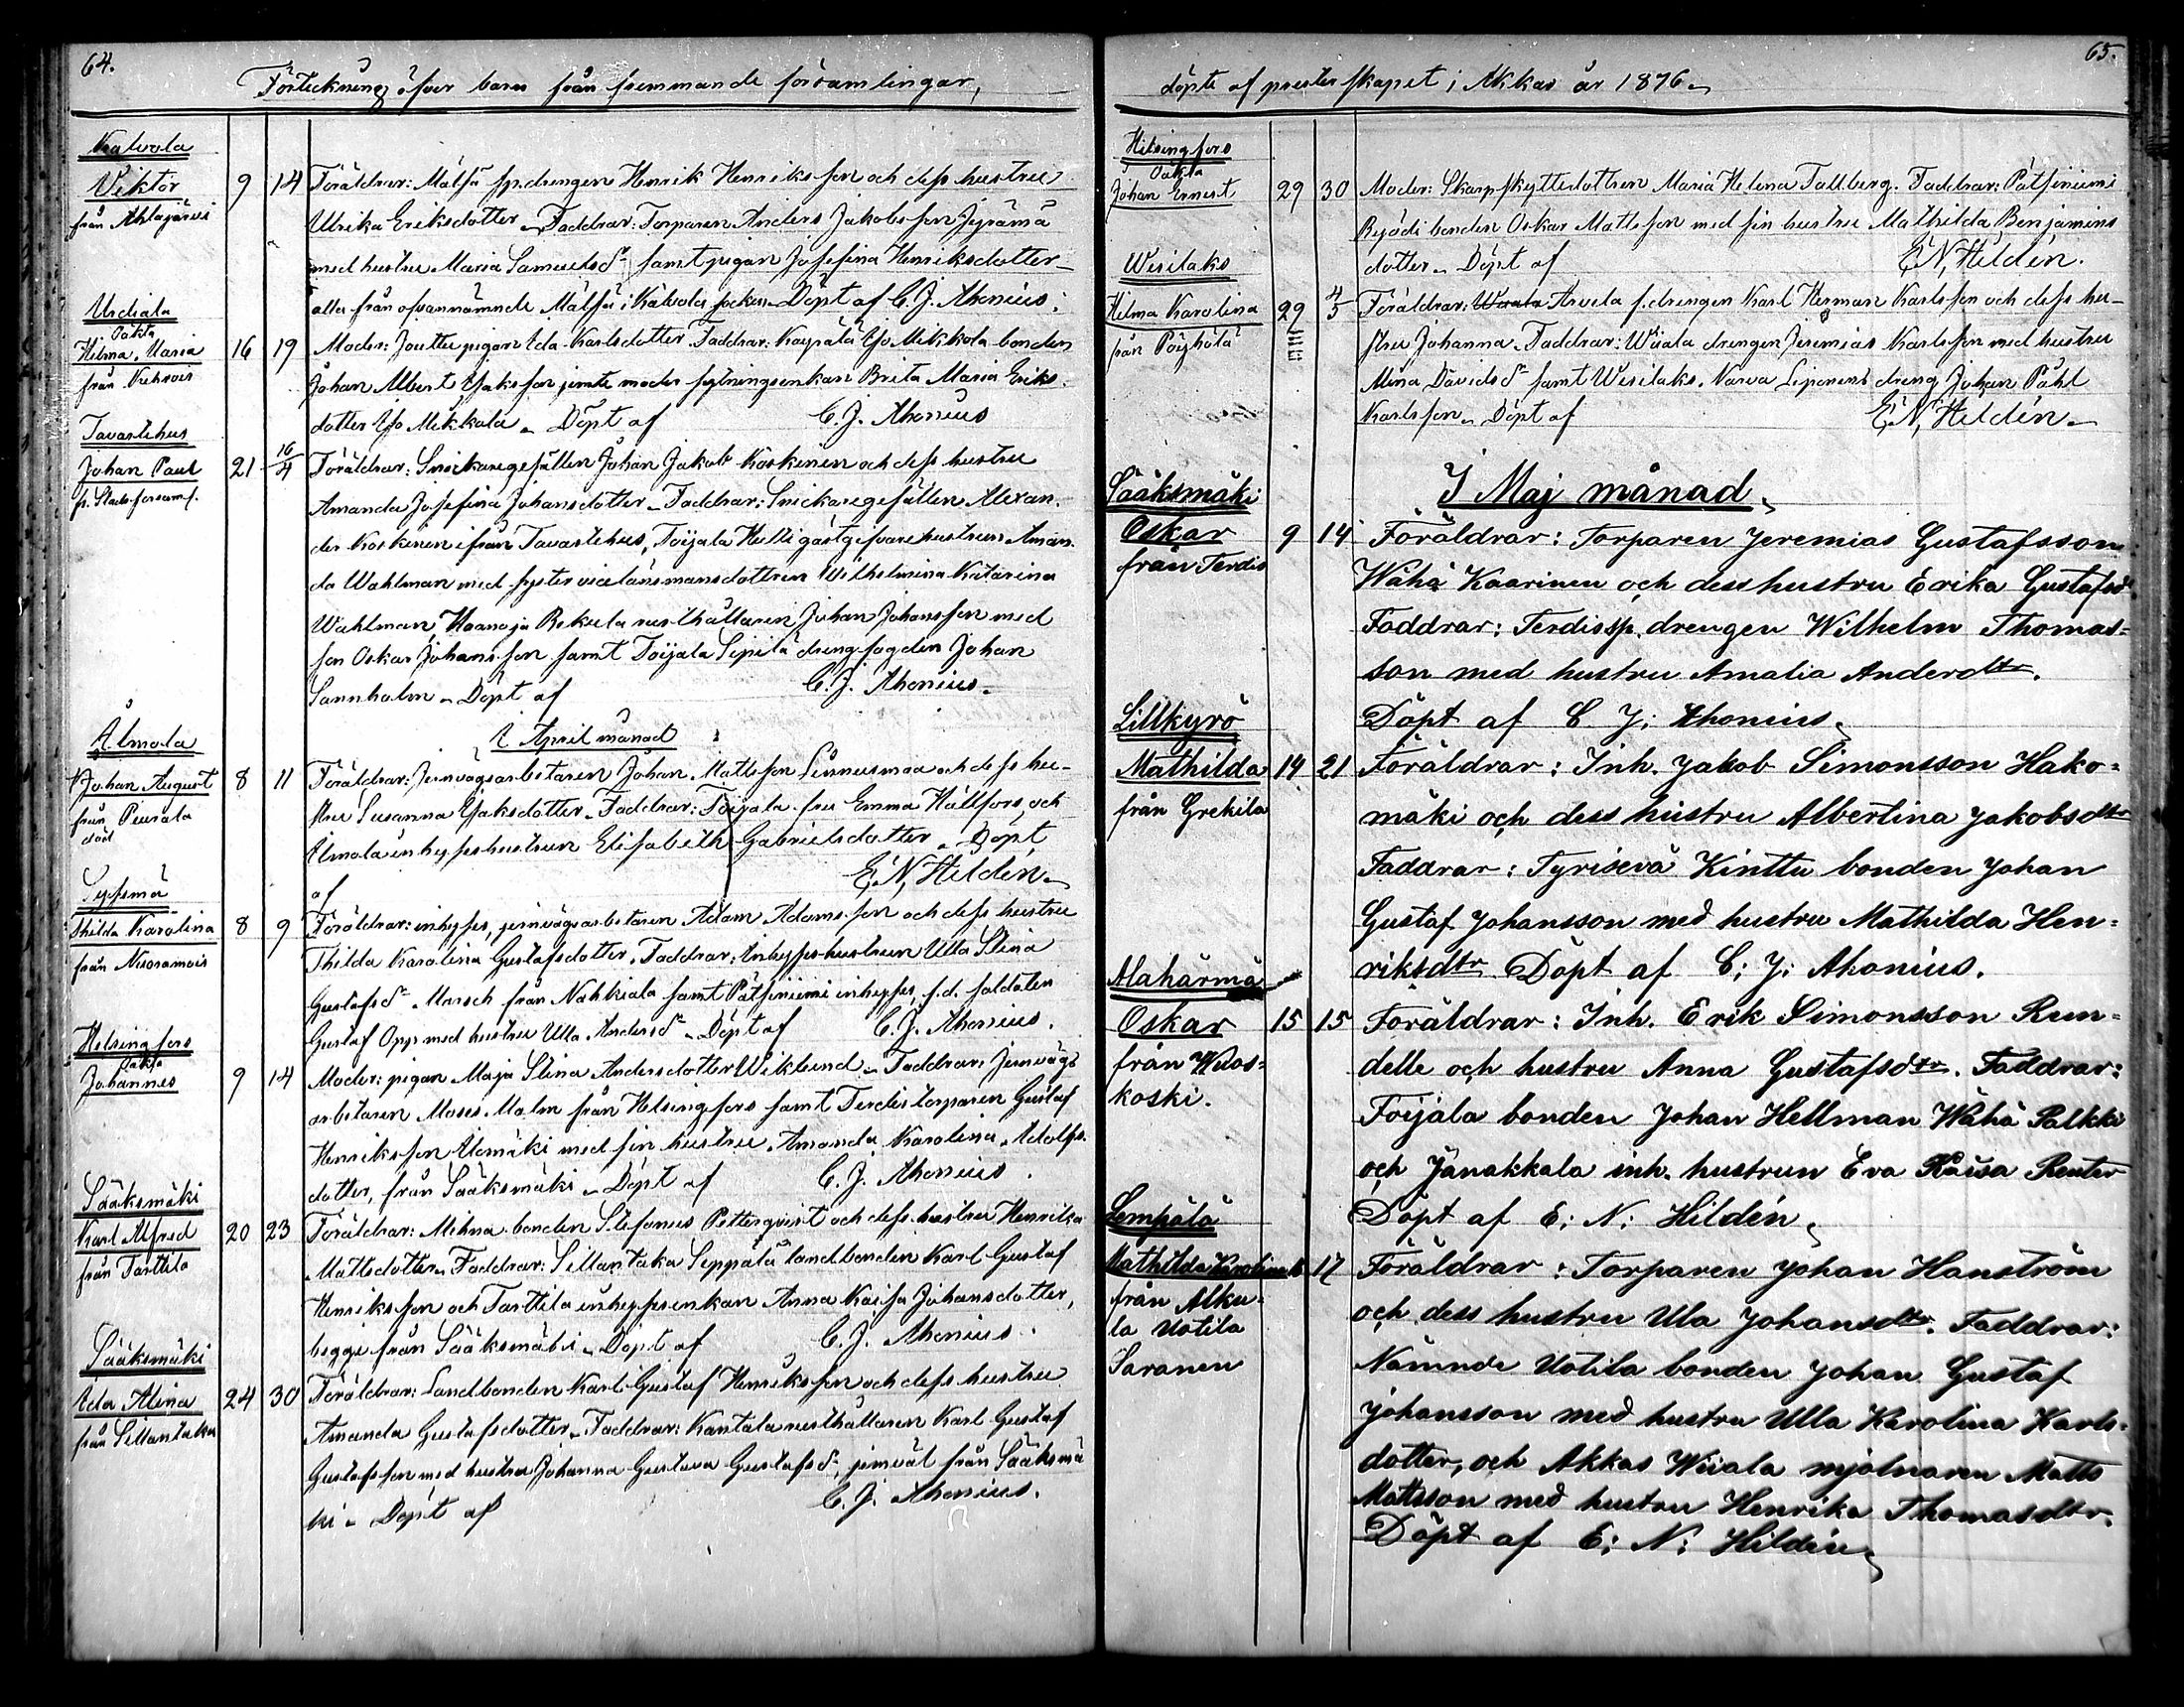 64.
Förteckning öfver barn från fremmande församlingar,
Kalvola
Viktor 9 14 Föräldrar: Mälfä sp.drengen Henrik Henriksson och dess hustru
från Ahlajärvi
Ulrika Eriksdotter. Faddrar: Torparen Anders Jakobsson
med hustru Maria Samuelsdr samt pigan Josefina Henriksdotter
alla från ofvannämnde Mälfä i Kalvola socken. Döpt af C. J. Ahonius.
Urdiala
Oäkta
Hilma Maria 16 19 Moder: Jouttu pigan Ida Karlsdotter. Faddrar: Yjo Mikkola bonden
från
Johan Albert Isaksson jemte moder sytningsenkan Brita Maria Eriks
dotter Yjo Mikkola. Döpt af C. J. Ahonius
Tavastehus
Johan Paul 21 16/4 Föräldrar: Snickaregesällen Johan Jakob Koskinen och dess hustru
fr. Stadsförsaml.
Amanda Josefina Johansdotter. Faddrar: Snickaregesällen Alexan
der Koskinen ifrån Tavastehus, Toijala Hulli gästgifvarehustrun Aman
da Wahlman med syster vicelänsmansdottren Wilhelmina Katarina
Wahlman, Haanoja Rekula rusthållaren Johan Johansson med
son Oskar Johansson samt Toijala Sipilä drengfogden Johan
Sannholm. Döpt af C. J. Ahonius.
I April månad
Ilmola
Johan August 8 11 Föräldrar: Jernvägsarbetaren Johan Mattsson Linnusmaa och dess hu-
från Peurala
död
stru Susanna Isaksdotter. Faddrar: Toijala fru Emma Hällfors, och
Ilmola inhyses hustrun Elisabeth Gabrielsdotter. Döpt
af E. N. Hildén.
Syssmä
Thilda Karolina 8 9 Föräldrar: inhyses, jernvägsarbetaren Adam Adamsson och dess hustru
från Nuoramois
Thilda Karolina Gustafsdotter. Faddrar: Inhyses hustrun Ulla Stina
Gustafsdr Marsch från Nahkiala samt Pätsiniemi inhyses, f.d. soldaten
Gustaf Opp med hustru Ulla Andersdr. Döpt af C. J. Ahonius.
Helsingfors
Oäkta
Johannes 9 14 Moder: pigan Maja Stina Andersdotter Wiklund. Faddrar: Jernvägs
arbetaren Moses Malm från Helsingfors samt Terdis torparen Gustaf
Henriksson Alomäki med sin hustru Amanda Karolina Adolfs
dotter, från Sääksmäki. Döpt af C. J. Ahonius.
Sääksmäki
Karl Alfred 20 23 Föräldrar: Mihna bonden Stefanus Petterqvist och dess hustru Henrika
från Tarttila
Mattsdotter. Faddrar: Sillantaka Seppälä landbonden Karl Gustaf
Henriksson och Tarttila inhysesenkan Anna Kaisa Johansdotter,
begge från Sääksmäki. Döpt af C. J. Ahonius.
Sääksmäki
Ida Alina 24 30 Föräldrar: Landbonden Karl Gustaf Henriksson och dess hustru
från Sillantaka
Amanda Gustafsdotter. Faddrar: Kantala rusthållaren Karl Gustaf
Gustafsson med hustru Johanna Gustava Gustafsdr, jemväl från Sääksmä
ki. Döpt af C. J. Ahonius.
65.
döpte af presterskapet i Akkas år 1876.
Helsingfors
Oäkta
Johan Ernest 29 30 Moder: Skarpskyttedottren Maria Helena Tallberg. Faddrar: Pätsiniemi
bonden Oskar Mattsson med sin hustru Mathilda Benjamins
dotter. Döpt af E. N. Hildén.
Wesilaks
Hilma Karolina 29 4/5 Föräldrar: Arvela s.drengen Karl Herman Karlsson och dess hu-
från Pöyhölä
stru Johanna. Faddrar: Wiiala drengen Jeremias Karlsson med hustru
Mina Davidsdr samt Wesilaks, Narva Liponens dreng Johan Påhl
Karlsson. Döpt af E. N. Hildén.
I Maj månad
Sääksmäki
Oskar 9 14 Föräldrar: Torparen Jeremias Gustafsson
från Terdis
Wähä Kaarinen och dess hustru Erika Gustafsd.
Faddrar: Terdis sp. drengen Wilhelm Thomas=
son med hustru Amalia Andersdtr.
Döpt af C. J: Ahonius.
Lillkyrö
Mathilda 14 21 Föräldrar: Inh. Jakob Simonsson Hako=
från Grekila
mäki och dess hustru Albertina Jakobsdtr
Faddrar: Tyrisevä Kinttu bonden Johan
Gustaf Johansson med hustru Mathilda Hen=
riksdtr Döpt af C: J: Ahonius.
Alahärmä
Oskar 15 15 Föräldrar: Inh. Erik Simonsson Run=
från Wuos=
koski.
delle och hustru Anna Gustafsdtr. Faddrar:
Toijala bonden Johan Hellman Wähä Palkki
och Janakkala inh. hustrun Eva Kaisa Renter
Döpt af E: N: Hildén.
Lempälä
Mathilda Karolina 16 17 Föräldrar: Torparen Johan Hanström
från Alku=
la Uotila
Saranen
och dess hustru Ula Johansdtr. Faddrar:
Nämnde Uotila bonden Johan Gustaf
Johansson med hustru Ulla Karolina Karls=
dotter, och Akkas Wiiala mjölnaren Matts
Mattsson med hustru Henrika Thomasdtr.
Döpt af E: N: Hildén.